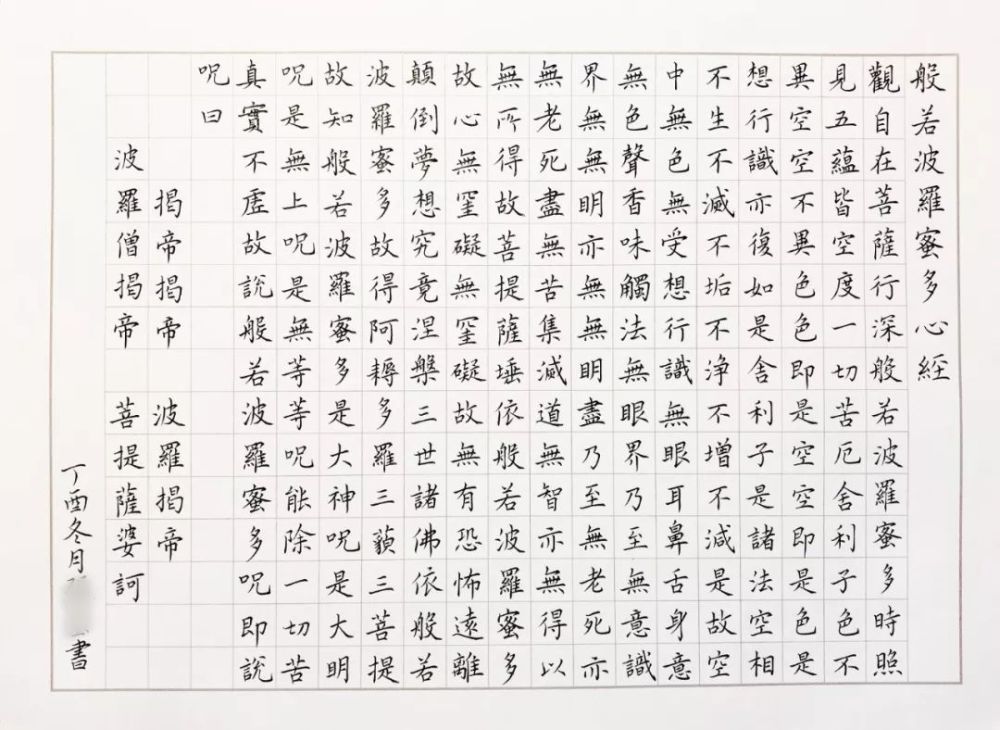 般若波羅蜜多心經
觀自在菩薩行深般若波羅蜜多時照
見五蘊皆空度一切苦厄舍利子色不
異空空不異色色即是空空即是色是
想行識亦復如是舍利子是諸法空相
不生不滅不垢不淨不增不減是故空
中無色無受想行識無眼耳鼻舌身意
無色聲香味觸法無眼界乃至無意識
界無無明亦無無明盡乃至無老死亦
無老死盡無苦集滅道無智亦無得以
無所得故菩提薩埵依般若波羅蜜多
故心無罣礙無罣礙故無有恐怖遠離
顛倒夢想究竟涅槃三世諸佛依般若
波羅蜜多故得阿耨多羅三藐三菩提
故知般若波羅蜜多是大神咒是大明
咒是無上咒是無等等咒能除一切苦
真實不虛故說般若波羅蜜多咒即說
咒曰
揭帝揭帝 波羅揭帝
波羅僧揭帝 菩提薩婆訶
丁酉冬月 書